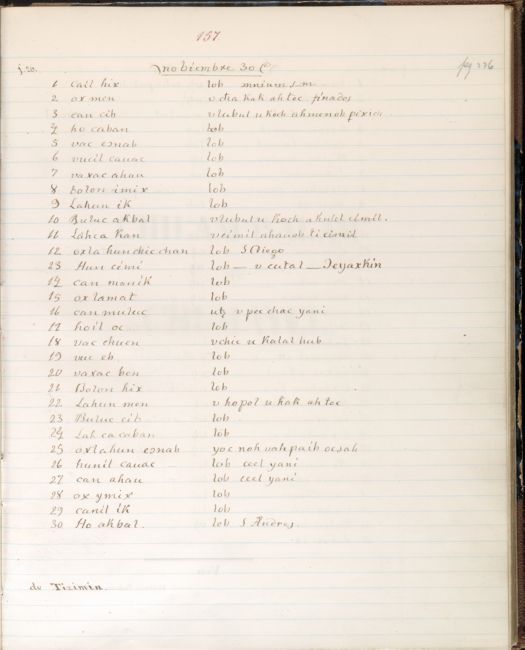 157
f. 20. nobiembre 30 pg 226
1 cail hix lob mnium s.m.
2 ox men u dia kak ah toc finados
3 can cib u lubul u koch ahmenob pixan
4 ho caban lob
5 vac esnab lob
6 vucil cauac lob
7 vaxac ahau lob
8 bolon imix lob
9 Lahun ik lob
10 Buluc akbal u lubul u koch ah
11 Lahca kan u cimil ahauob ti cimil
12 oxlahun chicchan lob S Diego
13 Hun cimi lob — u cutal — Deyaxkin
14 can manik lob
15 ox lamat lob
16 can muluc utz u pec chac yani
17 hoil oc lob
18 vac chuen u chic u kalal hub
19 vuc eb lob
20 vaxac ben lob
21 Bolon hix lob
22 Lahun men u hopol u kak ah toc
23 Buluc cib lob
24 Lah ca caban lob
25 oxlahun esnab yoc noh uah paib ocsah
26 hunil cauac lob ceel yani
27 can ahau lob ceel yani
28 ox ymix lob
29 canil ik lob
30 Ho akbal. lob S Andres.
de Tizimin.